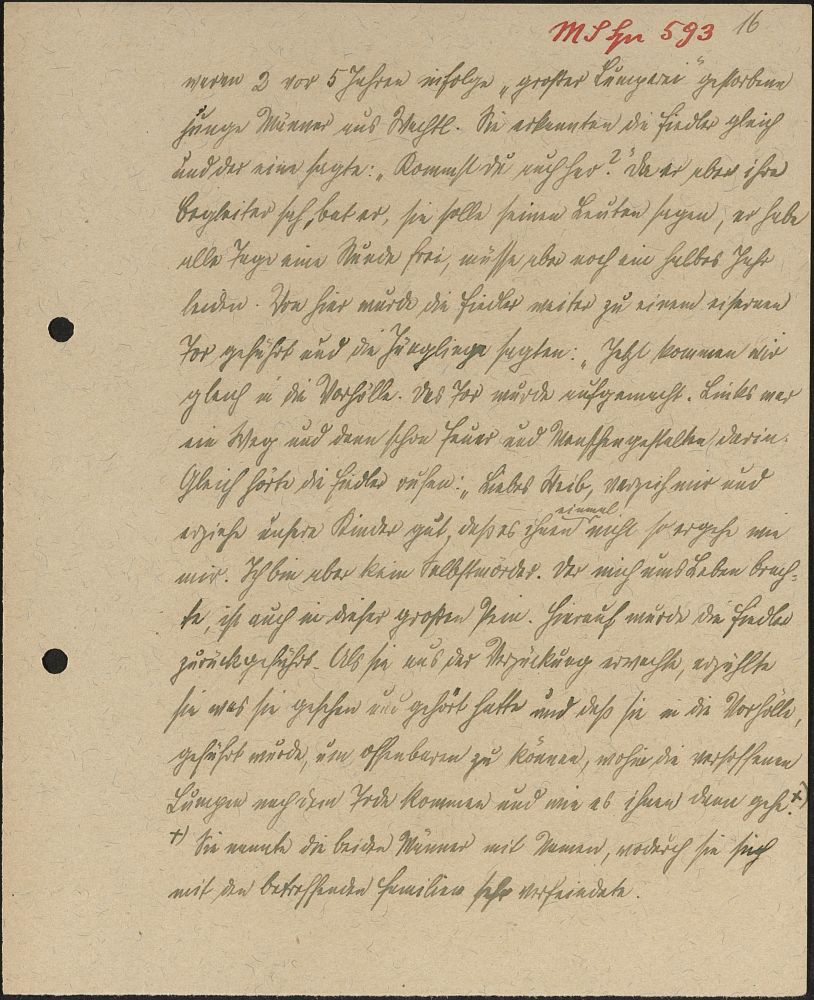 MS Hn 593 16
waren 2 vor 5 Jahren infolge „großer Lumperei" gestorbene
junge Männer aus Wechtl. Sie erkannten die Fiedler gleich
und der eine sagte: „Kommst du auch her?" Da er aber ihre
Begleiter sah, bat er, sie solle seinen Leuten sagen, er habe
alle Tage eine Stunde frei, müsse aber noch ein halbes Jahr
leiden. Von hier wurde die Fiedler weiter zu einem eisernen
Tor geführt und die Jünglinge sagten: „Jetzt kommen wir
gleich in die Vorhölle. Das Tor wurde aufgemacht. Links war
ein Weg und dann schon Feuer und Menschengestalten darin.
Gleich hörte die Fiedler rufen: „Liebes Weib, verzeih mir und
erziehe unsere Kinder gut, daß es ihnen einmal nicht so ergehe wie
mir. Ich bin aber kein Selbstmörder. Der mich ums Leben brach-
te, ist auch in dieser großen Pein. Hierauf wurde die Fiedler
zurückgeführt. Als sie aus der Verzückung erwachte, erzählte
sie was sie gesehen und gehört hatte und daß sie in die Vorhölle,
geführt wurde, um offenbaren zu können, wohin die versoffenen
Lumpen nach dem Tode kommen und wie es ihnen dann gehe. +)
+) Sie nannte die beiden Männer mit Namen, wodurch sie sich
mit den betreffenden Familien sehr verfeindete.